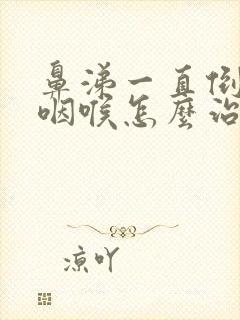 鼻涕一直倒
咽喉怎麼治
凉吖